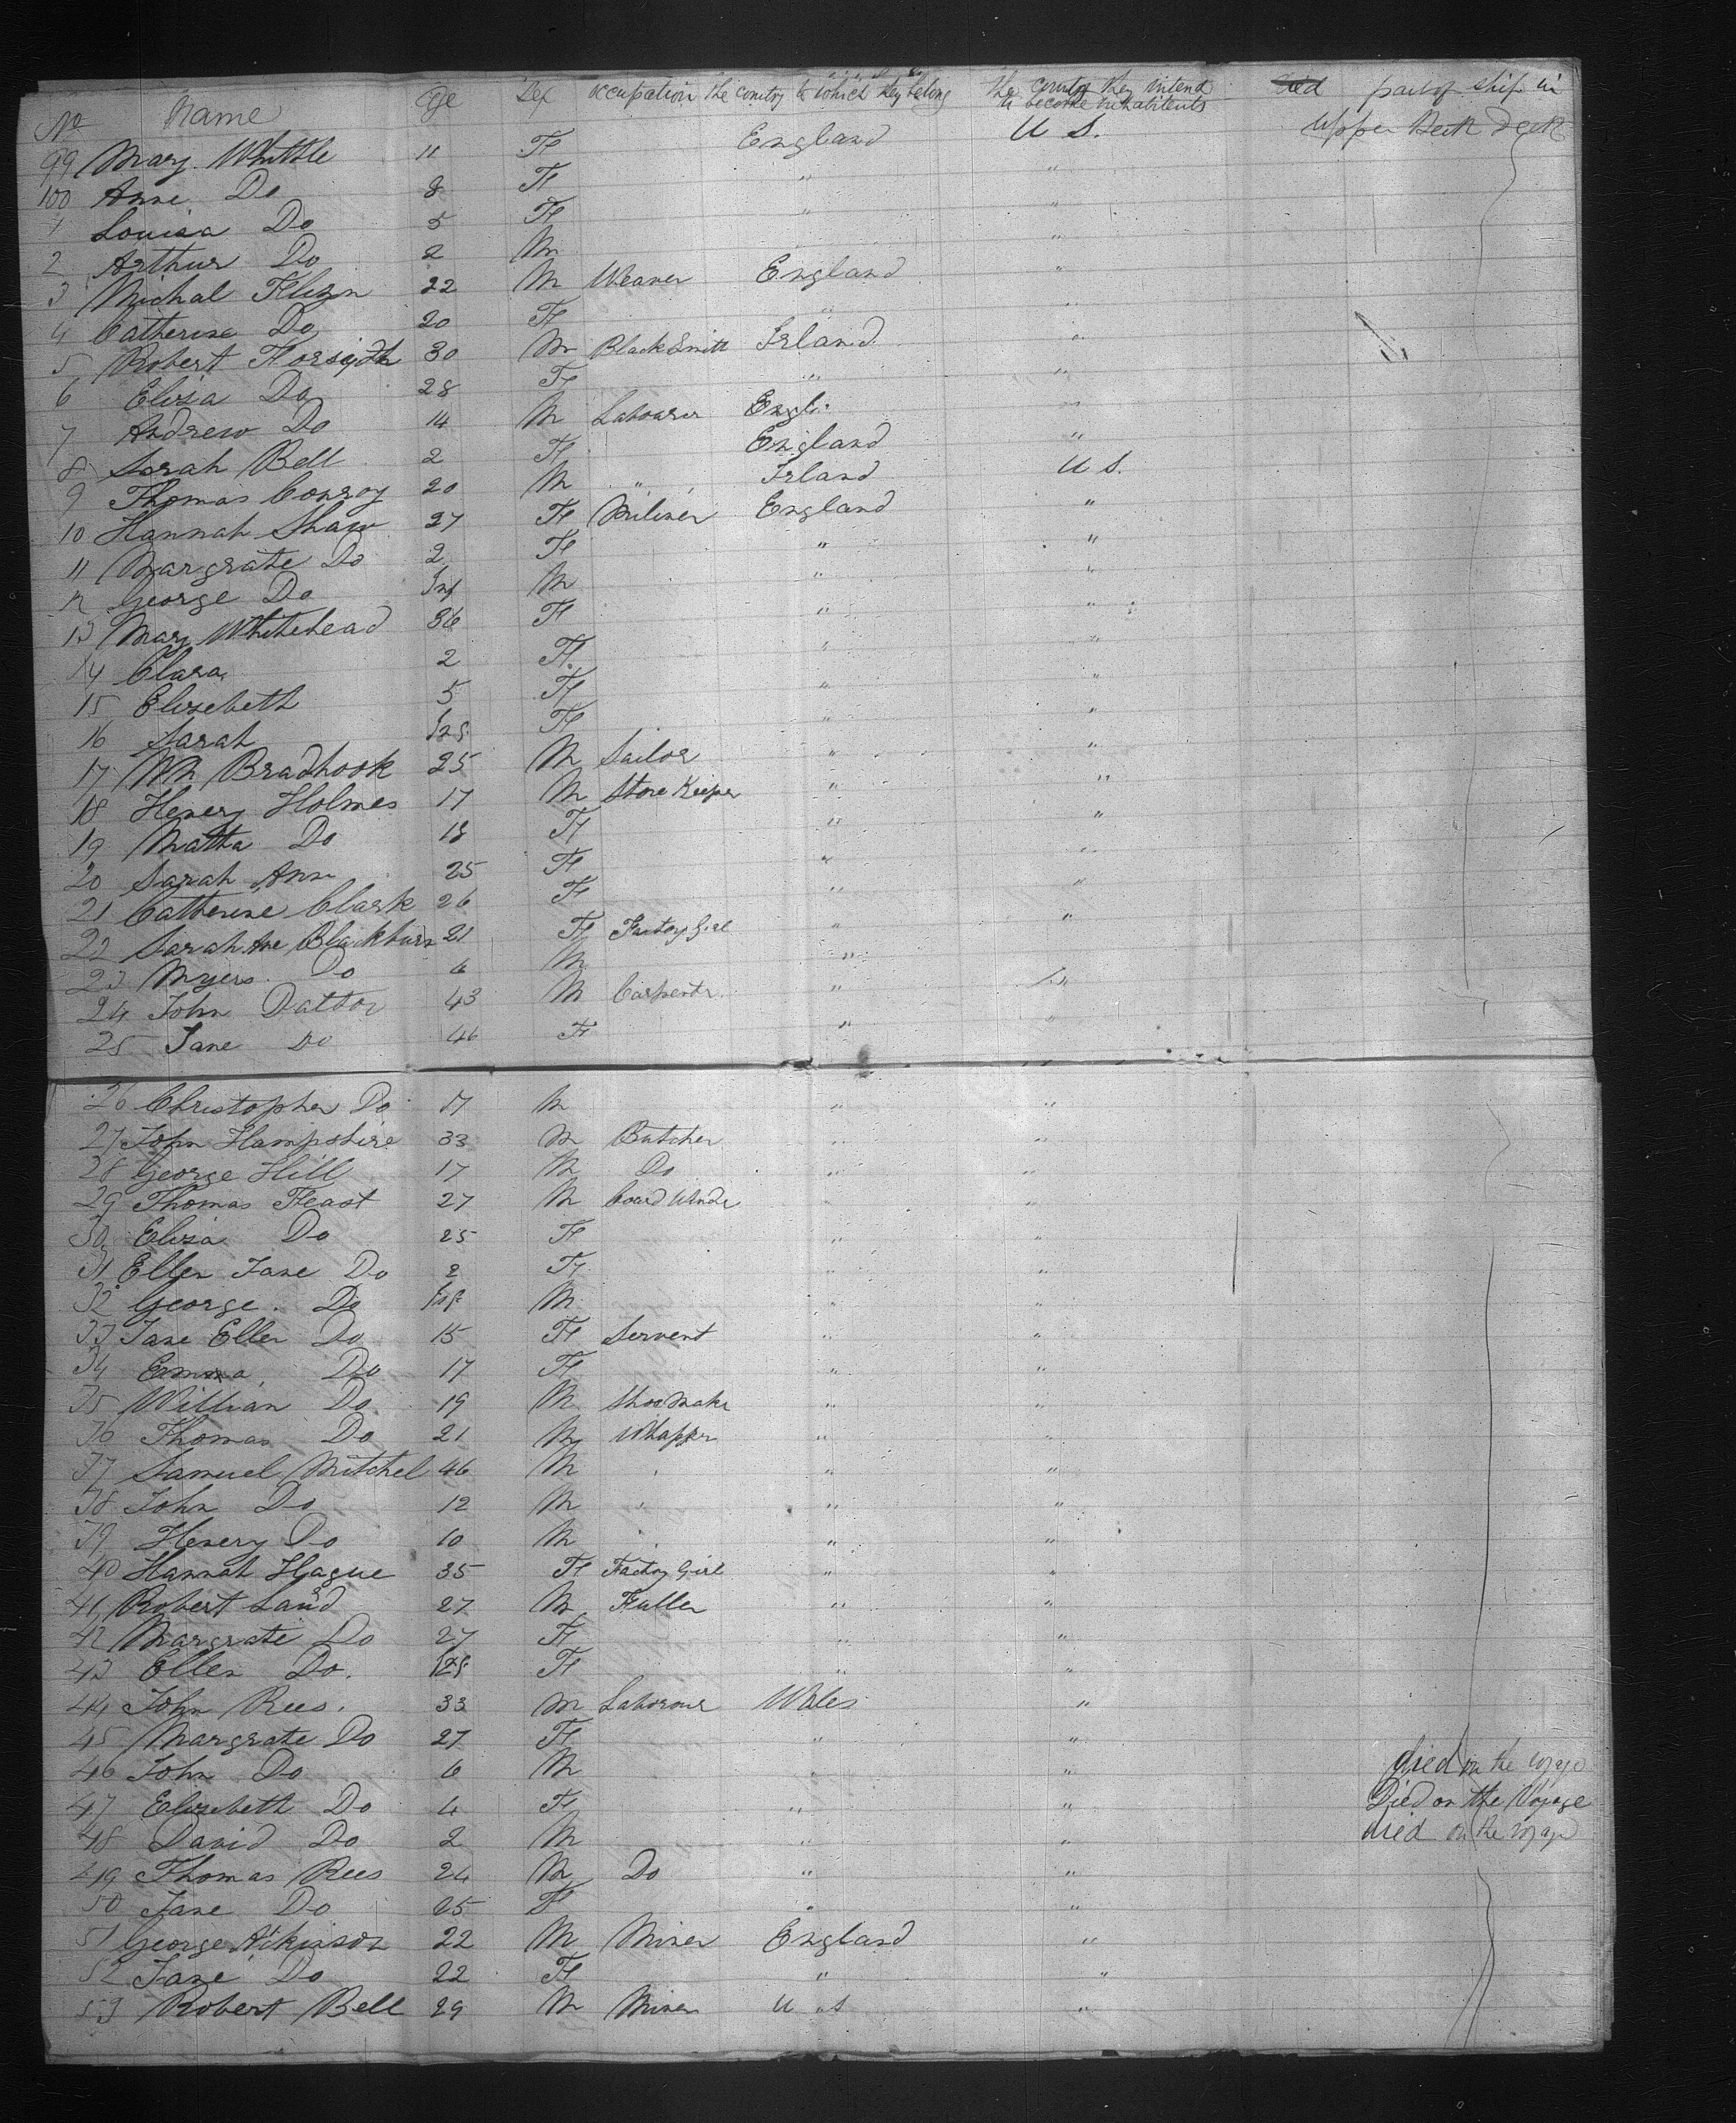 No Name Age Sex occupation the contry to which they belong the contry they intend to become inhabitents died part of ship in
99 Mary Whittle 11 F England U S. Upper Deck
100 Anne Do 8 F " "
1 Louisa Do 5 F " "
2 Arthur Do 2 M "
3 Michal 22 M Weaver England "
4 Catherine Do 20 F " "
5 Robert Forsyth 30 M BlackSmitt Irland "
6 Eliza Do 28 F " "
7 Andrew Do 14 M Labourer Engl "
8 Sarah Bell 2 F England "
9 Thomas Conroy 20 M " Irland U S.
10 Hannah Shaw 27 F Miliner England "
11 Margrate Do 2 F " "
12 George Do Inf M " "
13 Mary Whitehead 36 F " "
14 Clara 2 F " "
15 Elisebeth 5 F " "
16 Sarah Inf F " "
17 Wm Bradhook 25 M Sailor " "
18 Henery Holmes 17 M Store Keeper " "
19 Matta Do 18 F " "
20 Sarah Ann 25 F " "
21 Catherine Clark 26 F " "
22 Sarah Ane Blackburn 21 F Factory Girl " "
23 Myers Do 6 M "
24 John Dalton 43 M Carpentr " "
25 Jane Do 46 F " "
26 Christopher Do 17 M " "
27 John Hampshire 33 M Butcher " "
28 George Hill 17 M Do " "
29 Thomas Feast 27 M " "
30 Eliza Do 25 F " "
31 Ellen Jane Do 2 F " "
32 George Do Inf M " "
33 Jane Ellen Do 15 F Servent " "
34 Emma Do 17 F " "
35 William Do 19 M Shoe Make " "
36 Thomas Do 21 M Whapper " "
37 Samuel Mitchel 46 M " " "
38 John Do 12 M " " "
39 Henery Do 10 M " " "
40 Hannah Hague 35 F Factoy Girl " "
41 Robert Land 27 M Fuller " "
42 Margrate Do 27 F " "
43 Ellen Do. Inf F " "
44 John Rees. 33 M Laborour Wales "
45 Margrate Do 27 F " "
46 John Do 6 M " " died on the
47 Elisebeth Do 4 F " " Died on the Voyage
48 David Do 2 M " " died on the
49 Thomas Rees 24 M Do " "
50 Jane Do 25 F " "
51 George Atkinson 22 M Miner England "
52 Jane Do 22 F " "
53 Robert Bell 29 M Miner U S "